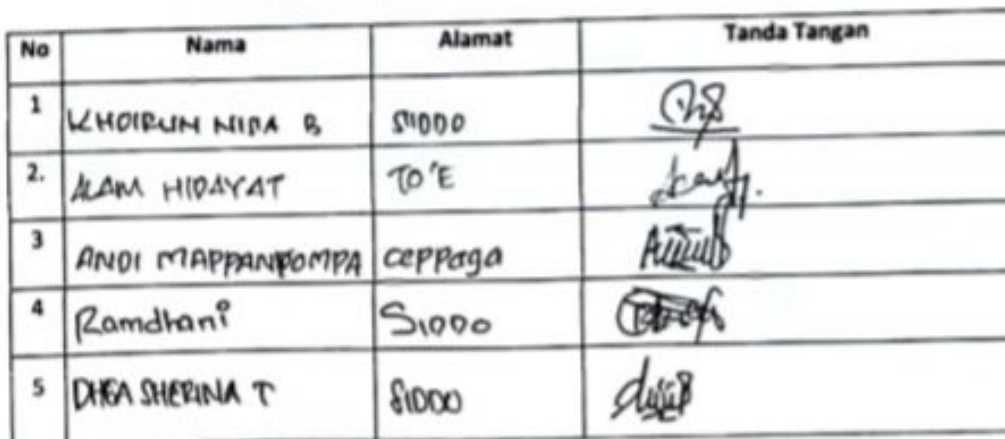 No Nama Alamat Tanda Tangan
1 KHOIRUN NISA B SIDDO
2. ALAM HIDAYAT TO'E
3 ANDI MAPPANPOMPA Ceppaga
4 Ramdhani SIDDO
5 DHEA SHERINA T SIDDO